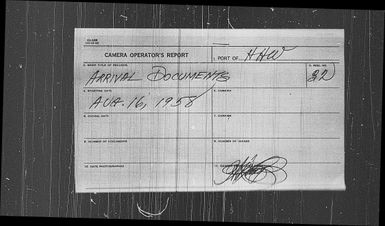 CAMERA OPERATOR'S REPORT
1. PORT OF HHW
2. BRIEF TITLE OF RECORDS
ARRIVAL DOCUMENTS
3. REEL NO.
22
4. STARTING DATE
AUG. 16, 1958
5. CAMERA
6. ENDING DATE
7. CAMERA
8. NUMBER OF DOCUMENTS
9. NUMBER OF IMAGES
10. DATE PHOTOGRAPHED